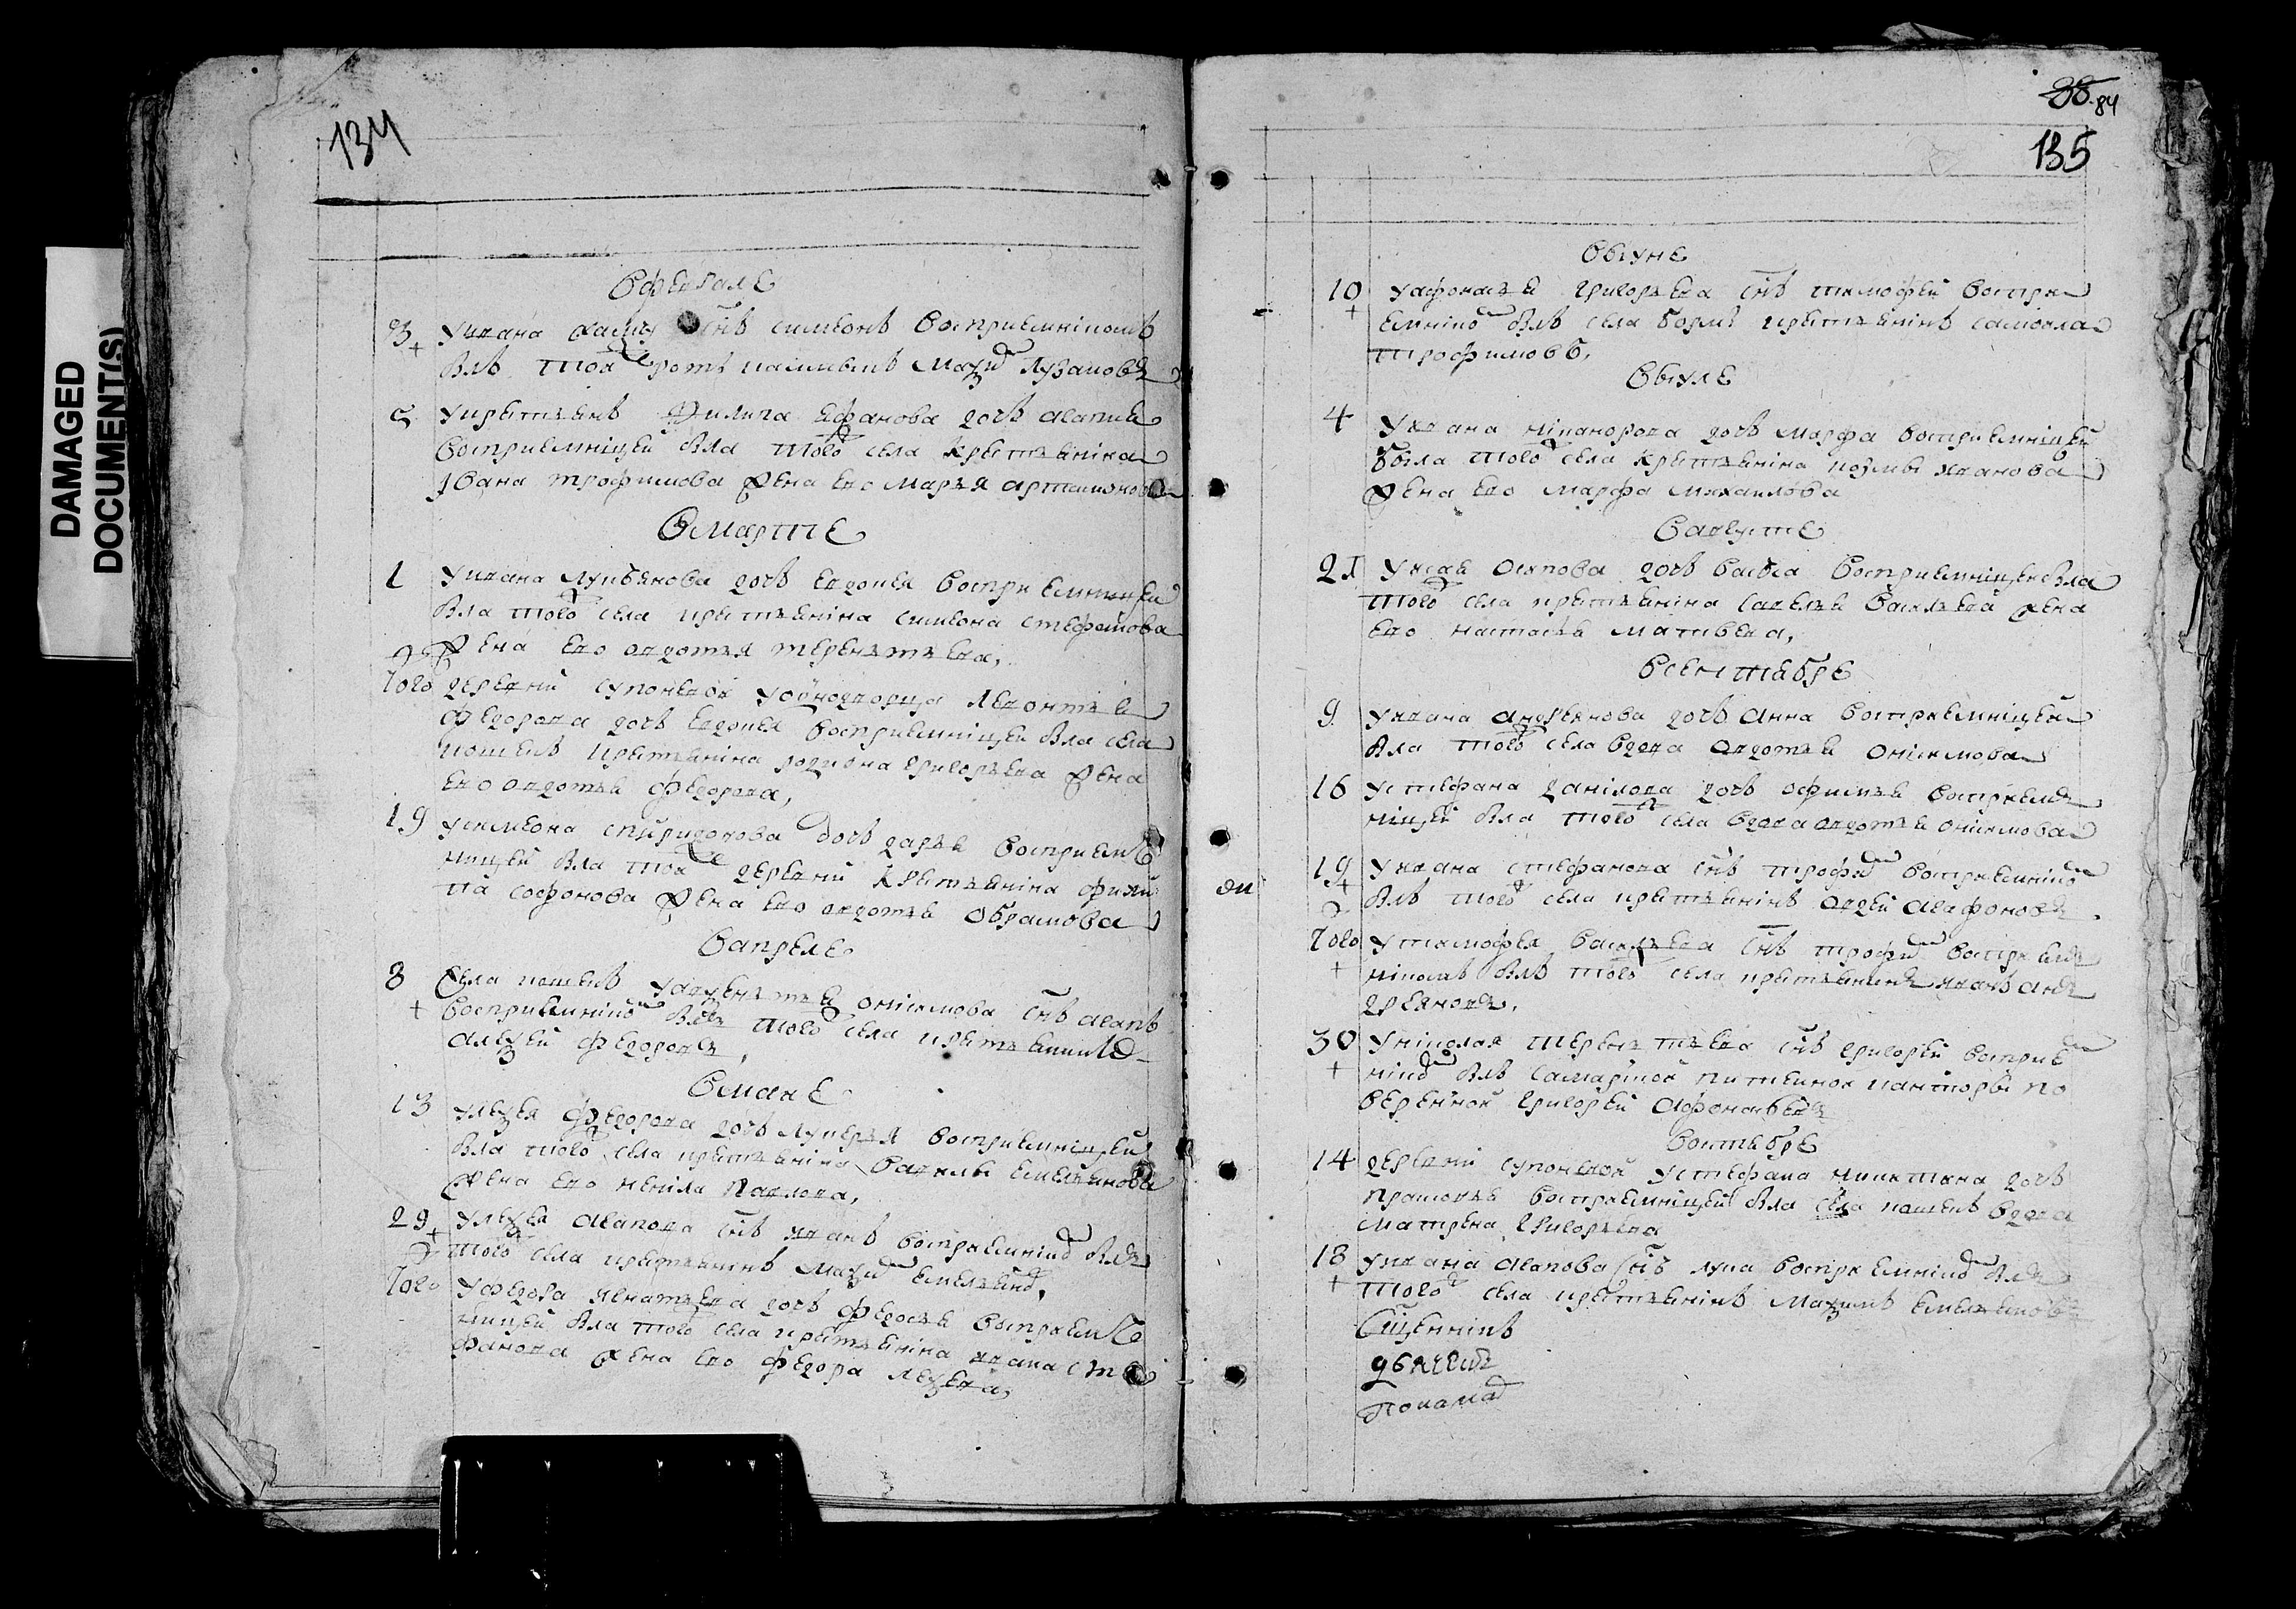 DAMAGED
DOCUMENT(S)
134
Вфевρале
3 Уивана сынъ симеонъ восприемникомъ
былъ тоя
5 укрестьянъ Филипа ефанова дочь агапия
восприемницей была того села крестьянина
Ивана трофимова жена ево марья артамонова
Вмарте
1 Уивана лукьянова дочь евдокия восприемницей
была того села крестьянина симеона стефанова
жена ево авдотья терентьева,
того деревни суповевой уоднодворца леонтья
федорова дочь евдокия восприемницей была села
кошекъ крестьянина родиона григорьева жена
ево авдотья федорова,
19 усимеона спиридонова дочь дарья восприем
ницей была тоя же деревни крестьянина фили
па софонова жена ево авдотья обрамова
Вапреле
8 Села кошекъ онисимова снъ агапъ
восприемникомъ былъ того села крестьянинъ
алексей федоровъ,
Вмаие
13 федорова дочь лукерья восприемницей
была того села крестьянина вавилы емельянова
жена ево ненила павлова,
29 агапова снъ иванъ восприемникомъ былъ
того села крестьянинъ максимъ емельяновъ,
того уфедора игнатьева дочь федосья восприем
ницей была того села крестьянина ивана сте
фанова жена ево федора
38 84
135
Виуне
10 Уафонасья григорьева снъ тимофей воспри
емникомъ былъ села бормы крестьянинъ самойла
трофимовъ.
Виуле
4 Уивана никанорова дочь марфа восприемницей
была того села крестьянина козмы иванова
жена ево марфа михаилова
Вавгусте
21 Уисая осипова дочь васса восприемницей была
того села крестьянина савелья васильева жена
ево настасья матвева,
Всентябре
9 Уивана андреянова дочь анна восприемницей
была того села вдова авдотья онисимова
16 устефана данилова дочь офимья восприем
ницей была того села вдова авдотья онисимова
19 Уивана стефанова снъ трофимъ восприемникомъ
былъ того села крестьянинъ авдей агафоновъ.
того Утимофея васильева снъ трофимъ восприем
никомъ былъ того села крестьянинъ иванъ ан
дреяновъ.
30 Униколая терентьева снъ григорей восприем
никомъ былъ самарской питейной канторы по
веренной григорей афонасьевъ
Воктябре
14 деревни суповевой устефана никитина дочь
прасковья восприемницей была села кошекъ вдова
матрена григорьева
18 Уивана агапова снъ лука восприемникомъ былъ
того села крестьянинъ максимъ емельяновъ
Сщенникъ
дьячекъ
Понамарь